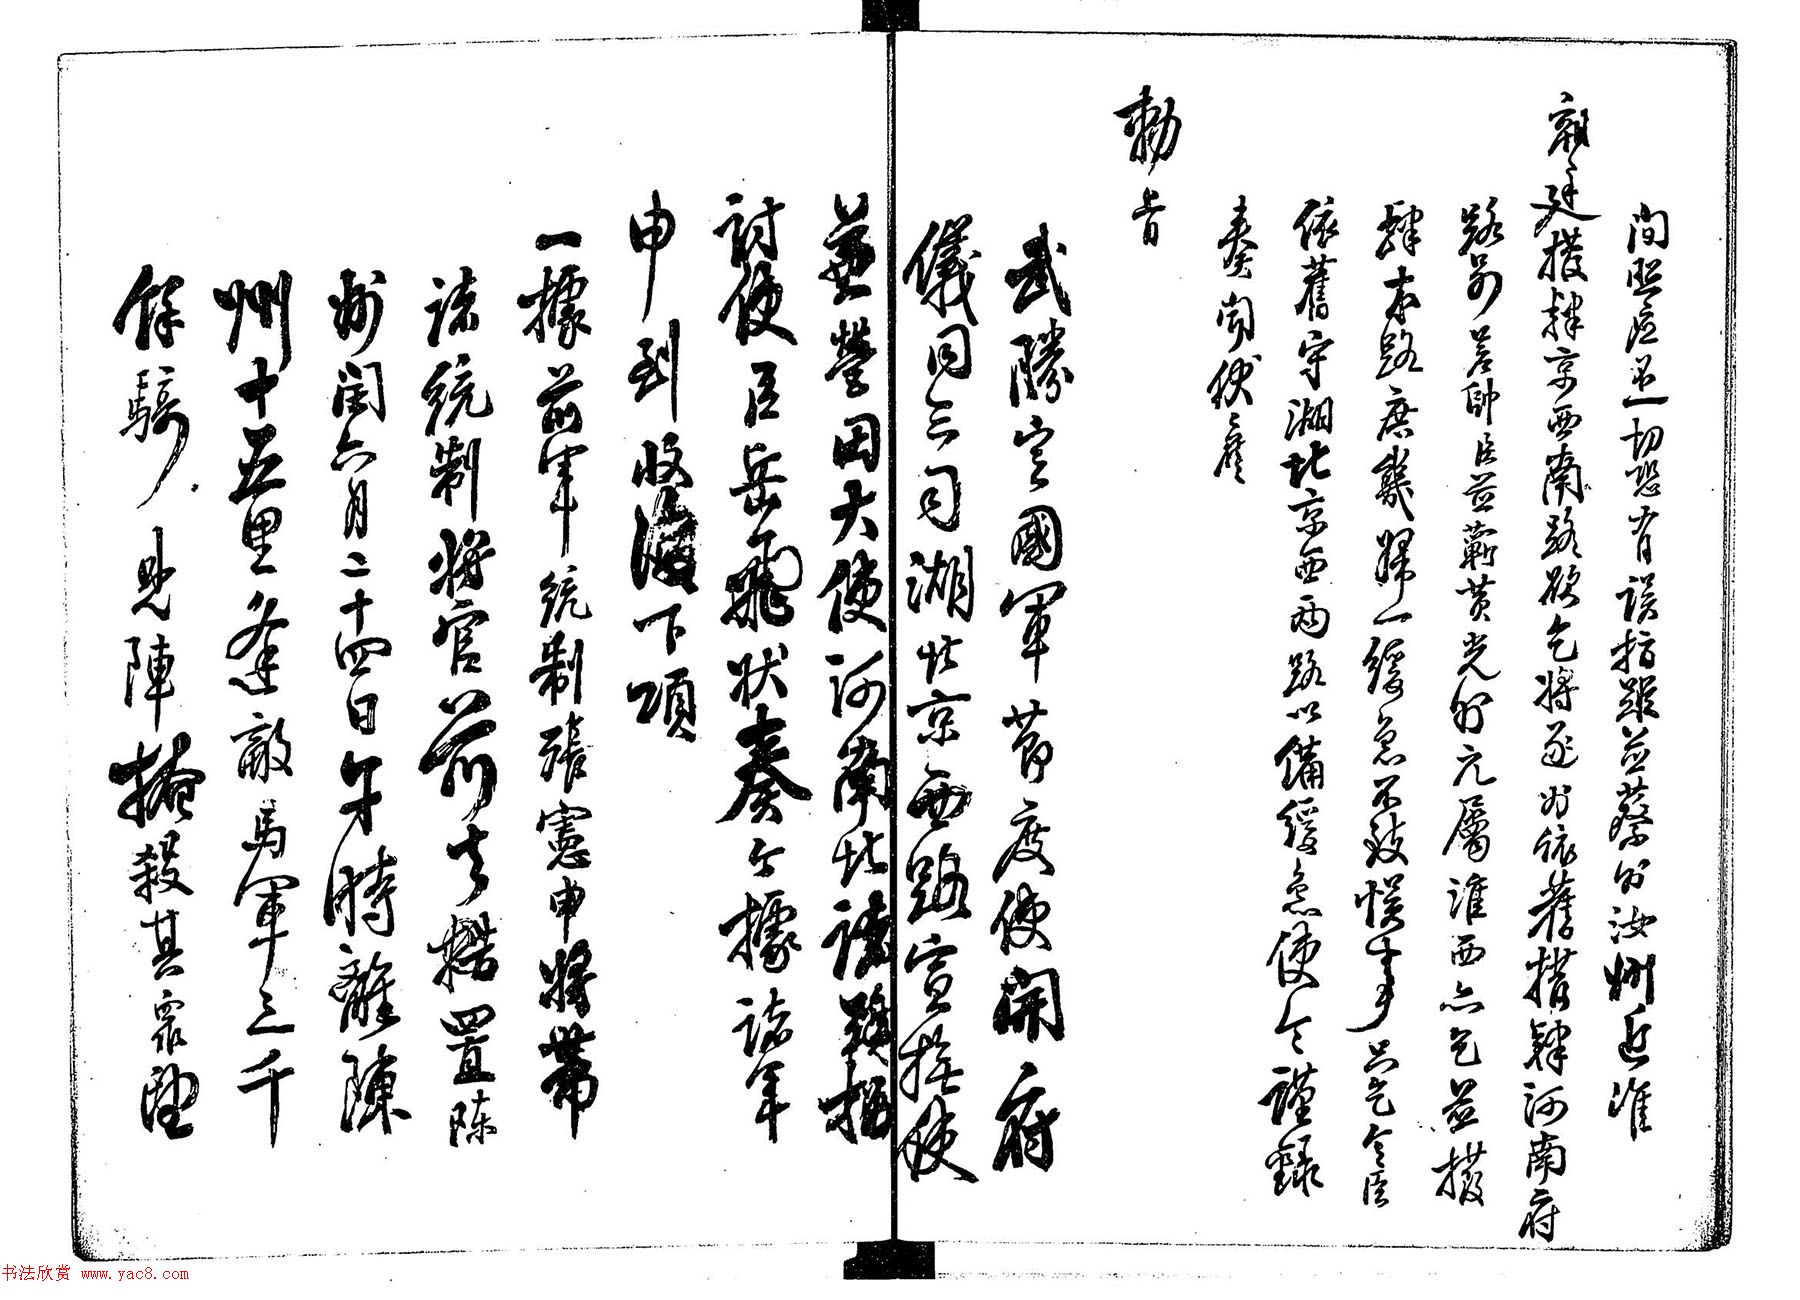 間照應並切恐有誤指蹤並蔡州汝州近準
朝廷撥隸京西南路欲乞將逐州依舊撥隸河南府
路別差帥臣並蘄黃光州元屬淮西亦乞並撥
隸本路庶幾歸一緩急不致悮事只乞令臣
依舊守湖北京西兩路以備緩急使令謹錄
奏聞伏候
勅旨
武勝定國軍節度使開府
儀同三司湖北京西路宣撫使
兼營田大使河南北諸路招
討使臣岳飛狀奏今據諸軍
申到收復下項
一據前軍統制張憲申將帶
諸統制將官前去措置陳
州閏六月二十四日午時離陳
州十五里逢敵馬軍三千
餘騎見陣掩殺其眾望
書法欣赏 www.yac8.com